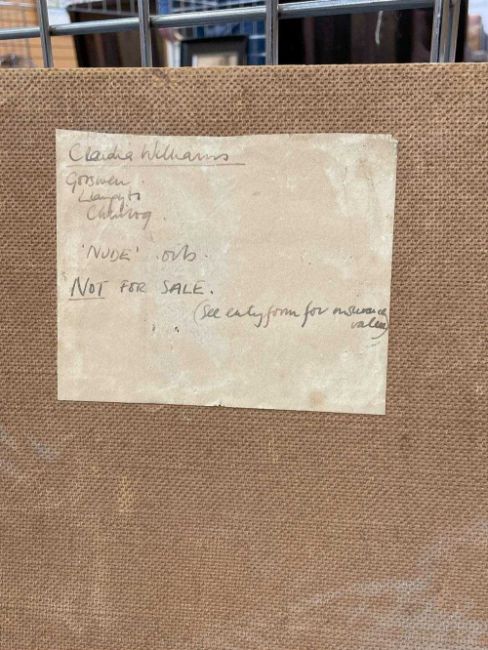 Claudia Williams
Gorswen.
'NUDE' oils.
NOT FOR SALE.
(See entry form for insurance
value)